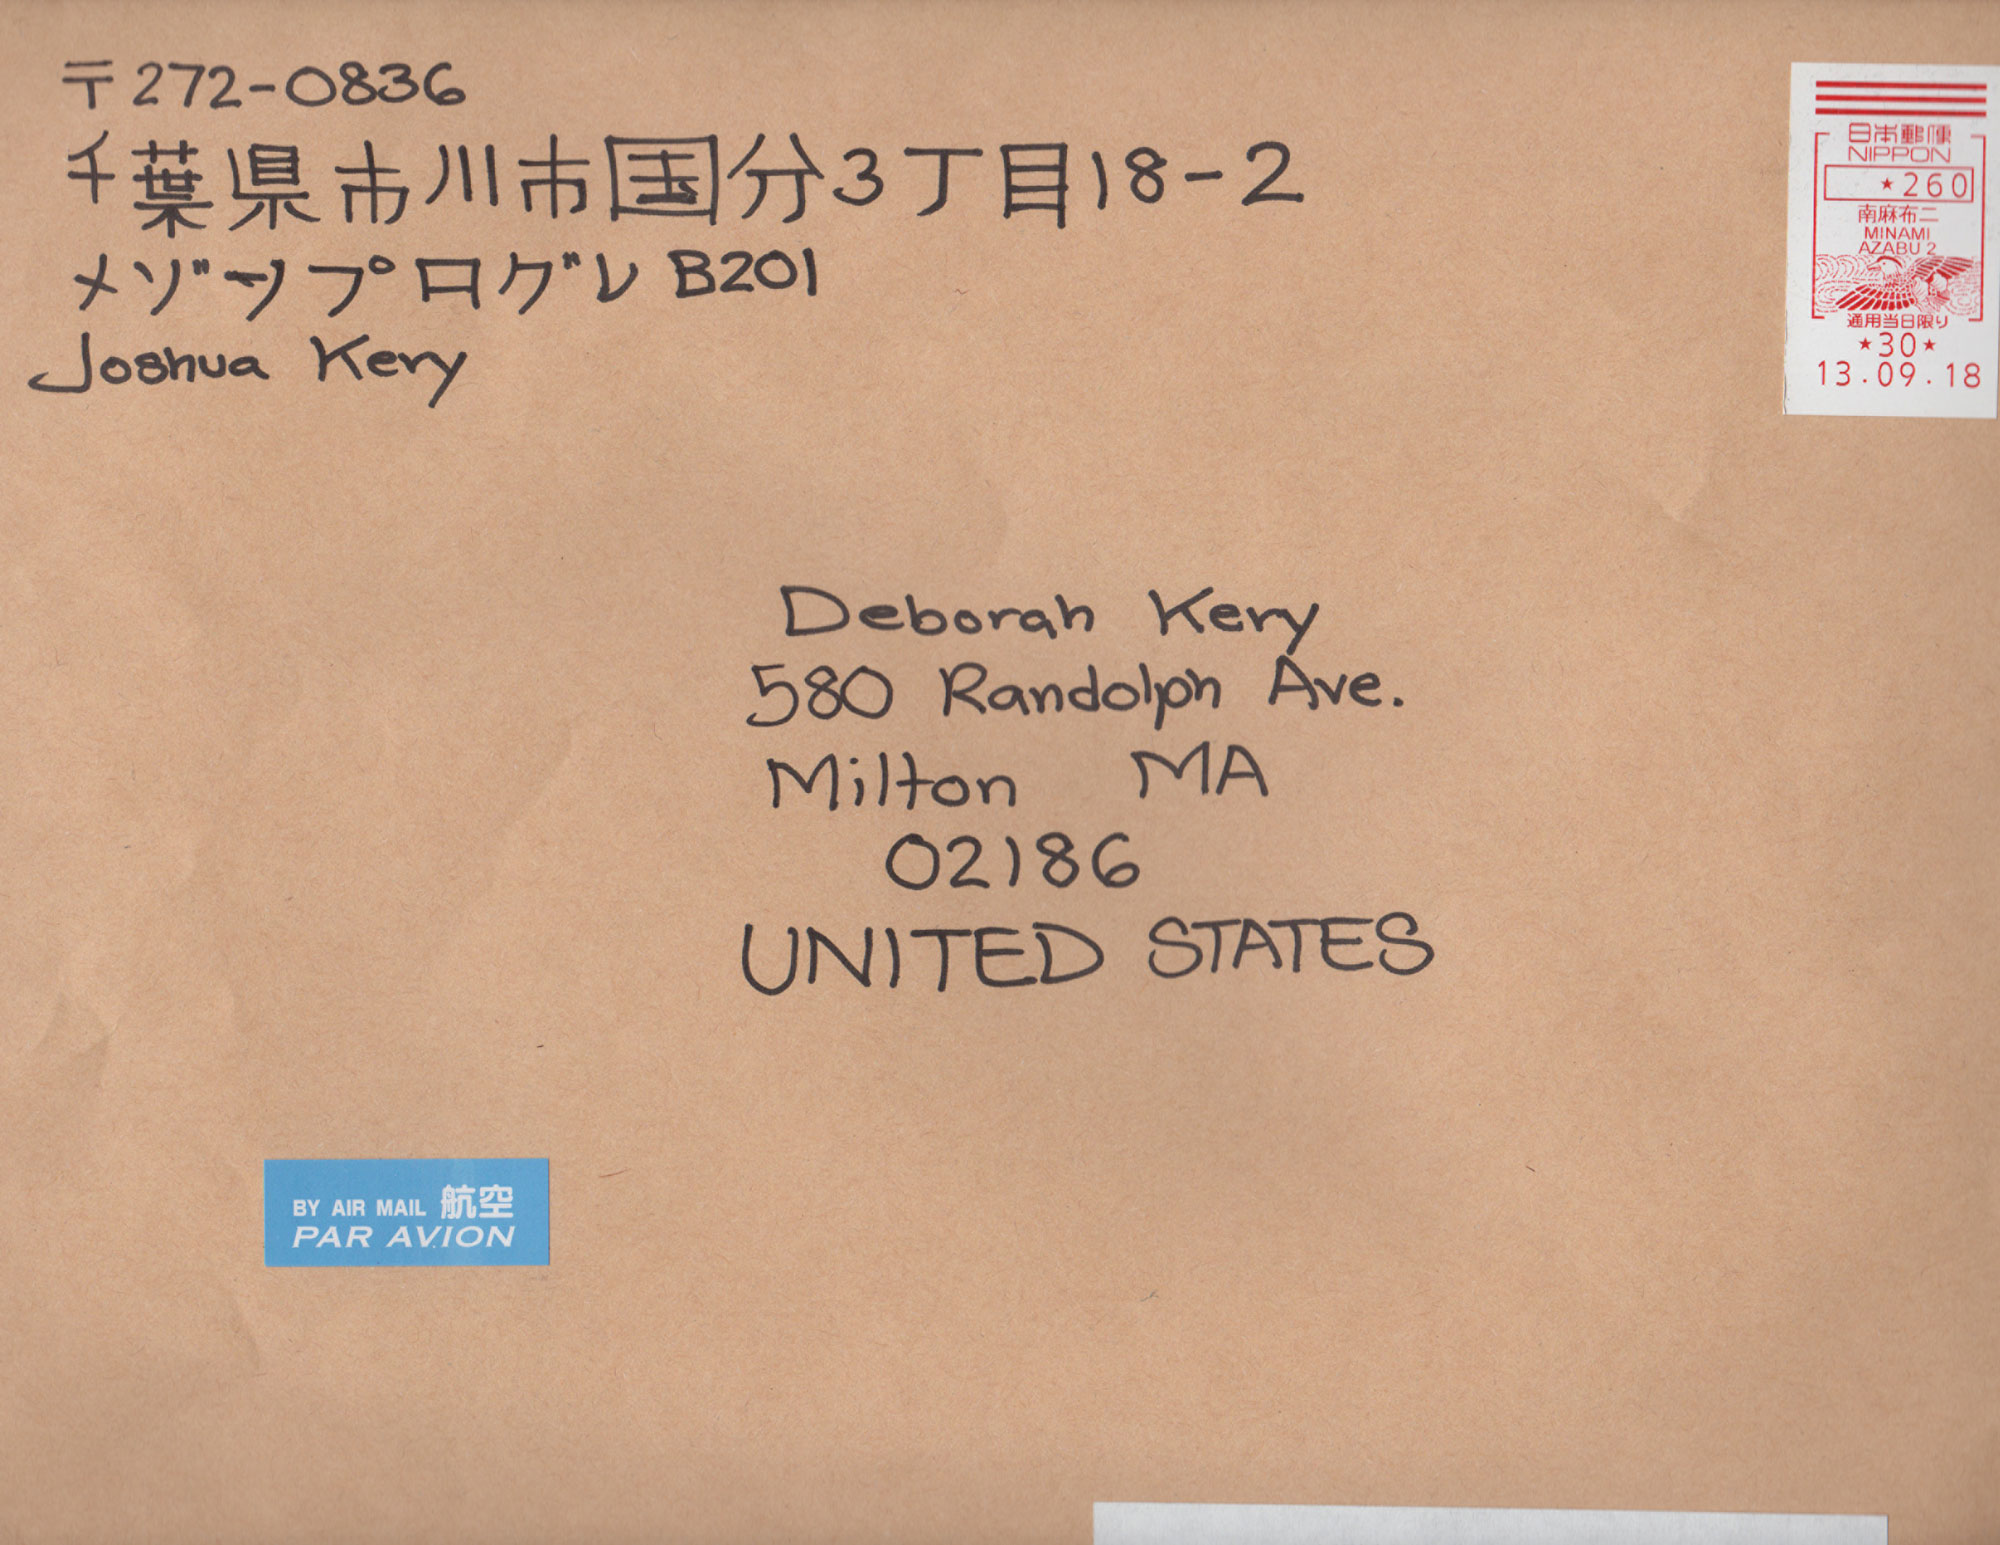 〒272-0836
千葉県市川市国分3丁目18-2
メゾツプログレB201
Joshua Kery
日本郵便
NIPPON
★260
南麻布二
MINAMI
AZABU 2
通用当日限り
★30★
13.09.18
Deborah Kery
580 Randolph Ave.
Milton MA
02186
UNITED STATES
BY AIR MAIL 航空
PAR AVION